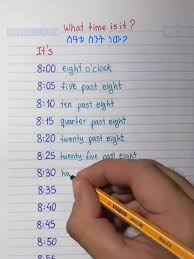 What time is it?
ሰዓቱ ስንት ነው?
It's
8:00 eight o'clock
8:05 five past eight
8:10 ten past eight
8:15 quarter past eight
8:20 twenty past eight
8:25 twenty-five past eight
8:30 ha
8:35
8:40
8:45
8:50
8:55